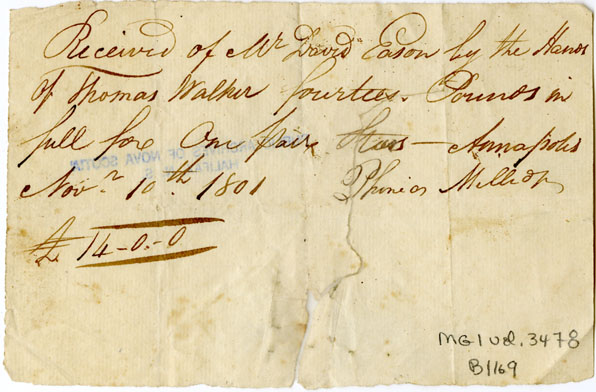 Received of Mr David Eason by the Hands
of Thomas Walker fourteen Pounds in
full for One pair — Annapolis
Novr 10th 1801 Phineas Millidge
£ 14-0-0
OF NOVA SCOTIA
HALIFAX
MG1 Vol. 3478
B1169